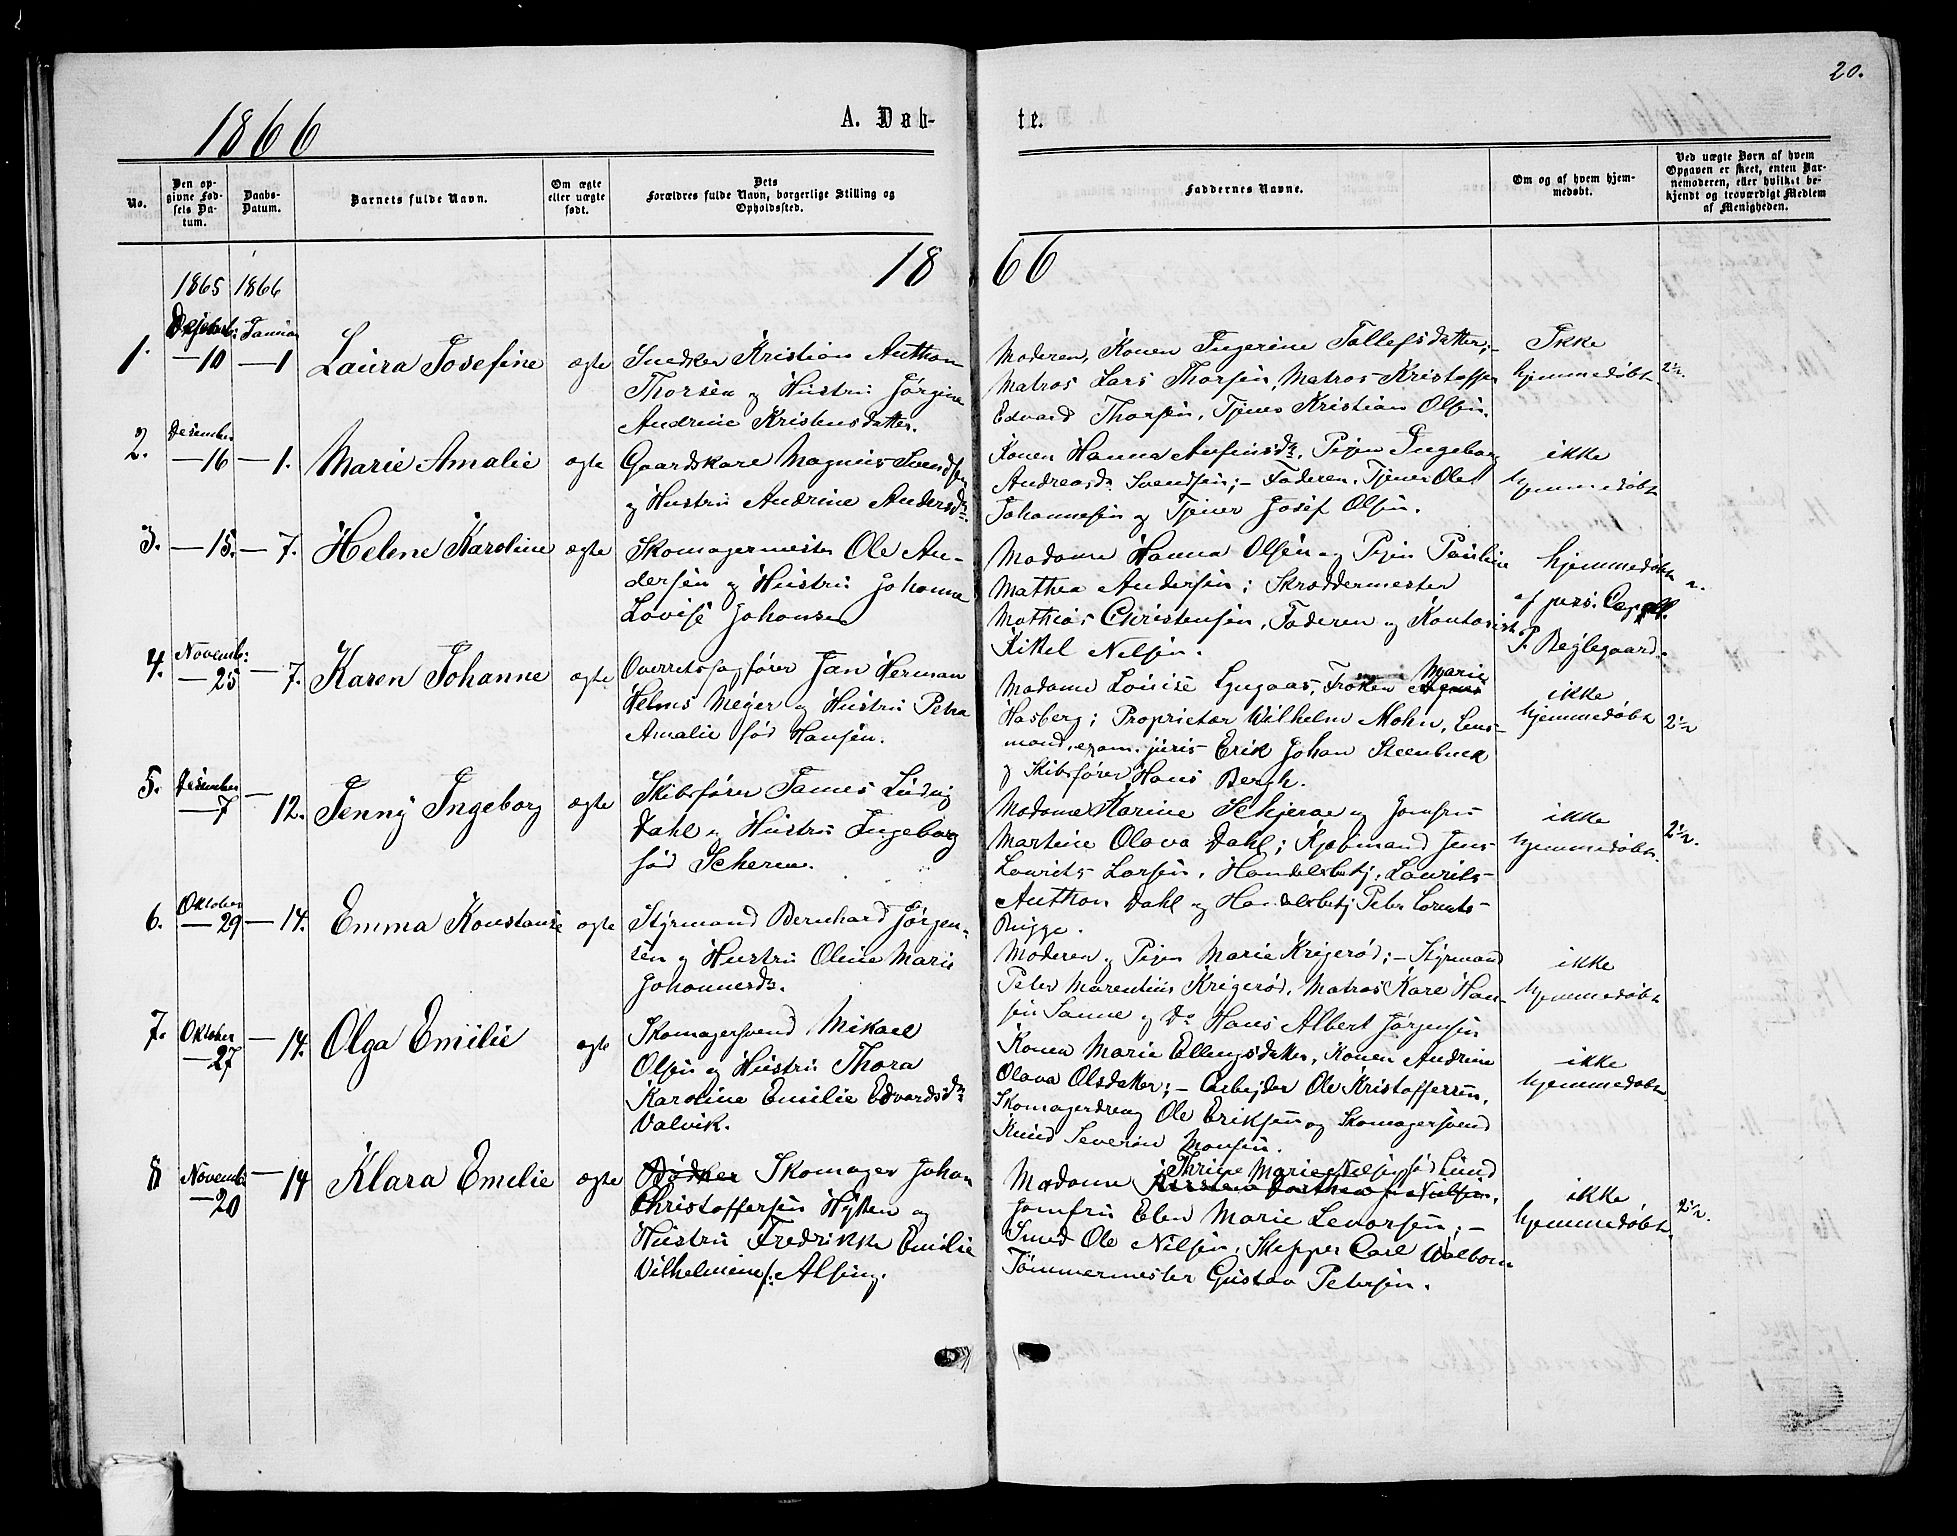 20.
1866
A. Døb-
te.
No.
Den op-
givne Fød-
sels Da-
tum.
Daabs-
Datum.
Barnets fulde Navn.
Om ægte
eller uægte
født.
Dets
Forældres fulde Navn, borgerlige Stilling og
Opholdssted.
Faddernes Navne.
Om og af hvem hjem-
medøbt.
Ved uægte Børn af hvem
Opgaven er skeet, enten Bar-
nemoderen, eller hvilket be-
kjendt og troværdigt Medlem
af Menigheden.
18
66
1865
1866
1.
—10
Januar
—1
Laura Josefine
ægte
Snedker Kristian Anthon
Thorsen og Hustru Jørgine
Andrine Kristensdatter.
Moderen, Konen Ingerine Tollefsdatter;—
Matros Lars Thorsen, Matros Kristoffer
Edvard Thorsen, Tjener Kristian Olsen.
Ikke
hjemmedøbt
2.
Desember
—16
—1.
Marie Amalie
ægte
Gaardskarl Magnus Svendsen
og Hustru Andrine Andersdr.
Konen Hanna Anfinsdr, Pigen Ingeborg
Andreasdr Svendsen;— Faderen, Tjener Ole
Johannesen og Tjener Josef Olsen.
ikke
hjemmedøbt
3.
—15.
—7.
Helene Karoline
ægte
Skomagermester Ole An-
dersen og Hustru Johanne
Lovise Johansen
Madame Hanna Olsen og Pigen Pauline
Mathea Andersen; Skræddermester
Mathias Christensen, Faderen og Kontorist
Kittel Nelsen.
hjemmedøbt
af pers. Capell.
P. Beglegaard.
4.
Novemb:
—25
—7.
Karen Johanne
ægte
Overretssagfører Jan Herman
Helms Meyer og Hustru Petra
Amalie fød Hansen.
Madame Louise Lyngaas, Frøken Marie
Hasberg; Proprietær Wilhelm Mohn, Lens-
mand, exam. juris Erik Johan Steenbuck
og Skibsfører Hans Bergh.
ikke
hjemmedøbt
5.
Desember
—7
—12.
Jenny Ingeborg
ægte
Skibsfører James Ludvig
Dahl og Hustru Ingeborg
fød Scheren.
Madame Karine Schjerae og Jomfru
Martine Olava Dahl; Kjøbmand Jens
Laurits Larsen, Handelsbetj. Laurits
Anthon Dahl og Handelsbetj Peter Lorents
Brigge.
ikke
hjemmedøbt.
6.
Oktober
—29
—14.
Emma Konstanse
ægte
Styrmand Bernhard Jørgen-
sen og Hustru Oline Marie
Johannesdr.
Moderen og Pigen Marie Krigerød;— Styrmand
Peter Marentius Krigerød, Matros Karl Han-
sen Sanne og Do Hans Albert Jørgensen
ikke
hjemmedøbt
7.
Oktober
—27
—14.
Olga Emilie
ægte
Skomagersvend Mikael
Olsen og Hustru Thora
Karoline Emilie Edvardsdr
Valvik.
Konen Marie Ellingsdatter, Konen Andrine
Olava Olsdatter;— Arbejder Ole Kristoffersen,
Skomagerdreng Ole Eriksen og Skomagersvend
Knud Severin Monsen.
ikke
hjemmedøbt
8
Novemb:
—20
—14
Klara Emilie
ægte
Bødker Skomager Johan
Christoffersen Hytten og
Hustru Fredrikke Emilie
Vilhelmine f. Alsing.
Thrine Marie Nilsen fød Lund
Madame Kirstine Dorthea Nielsen,
Jomfru Elen Marie Levorsen;—
Smed Ole Nilsen, Skipper Carl Walbom
Tømmermester Gustav Petersen.
ikke
hjemmedøbt.